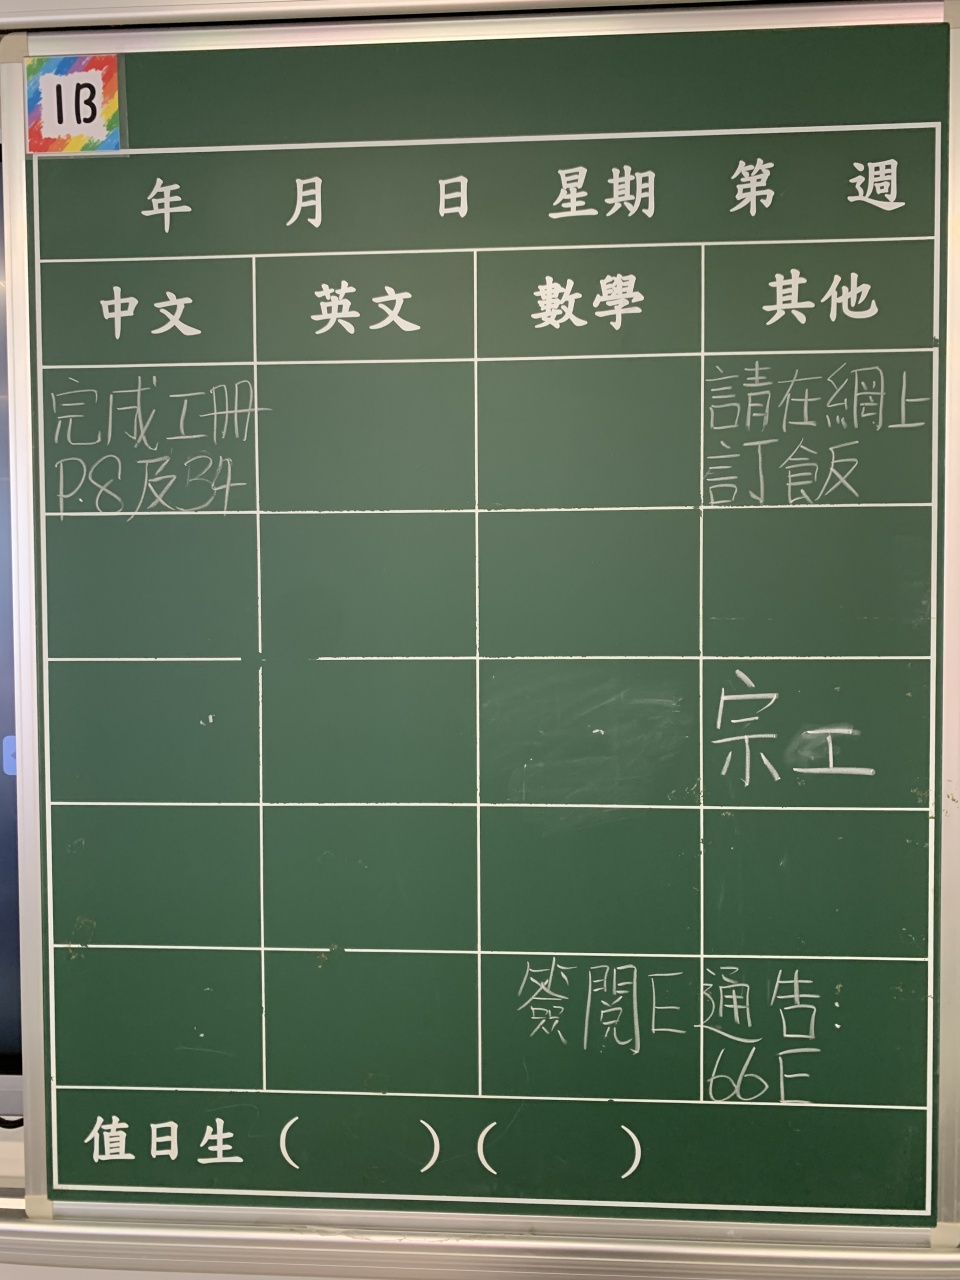 1B
年 月 日 星期 第 週
中文 英文 數學 其他
完成工冊
P.8及34
請在網上
訂飯
宗工
簽閱E通告:
66E
值日生 ( ) ( )